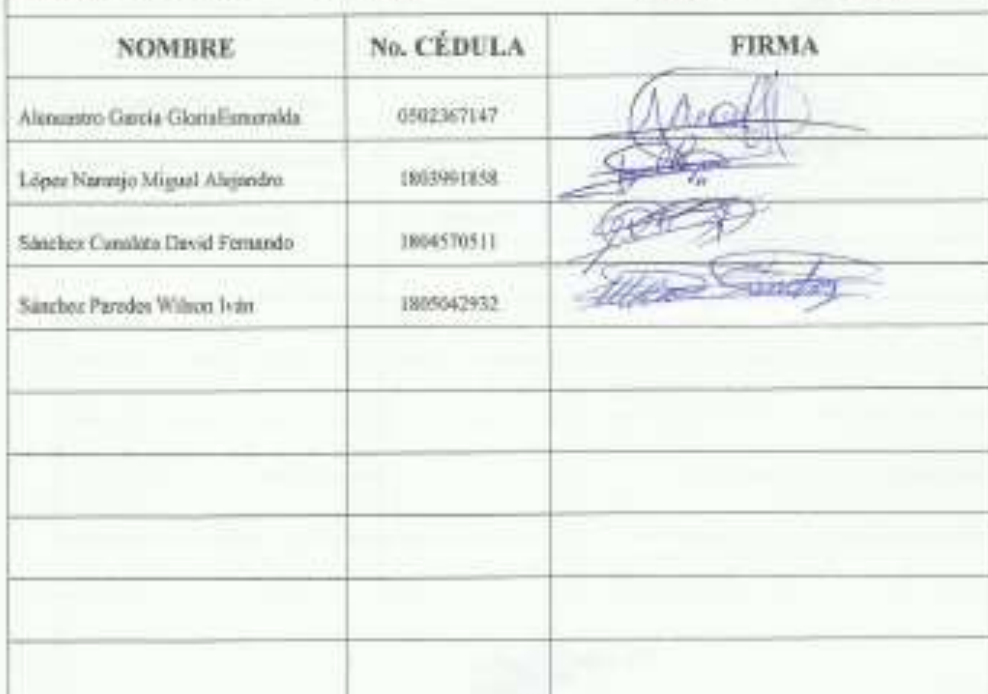 NOMBRE No. CÉDULA FIRMA
García Gloria Esmeralda 0502367147
López Naranjo Miguel Alejandro 1803991858
Sánchez Cunalata David Fernando 1804570511
Sánchez Paredes Wilson Iván 1805042932